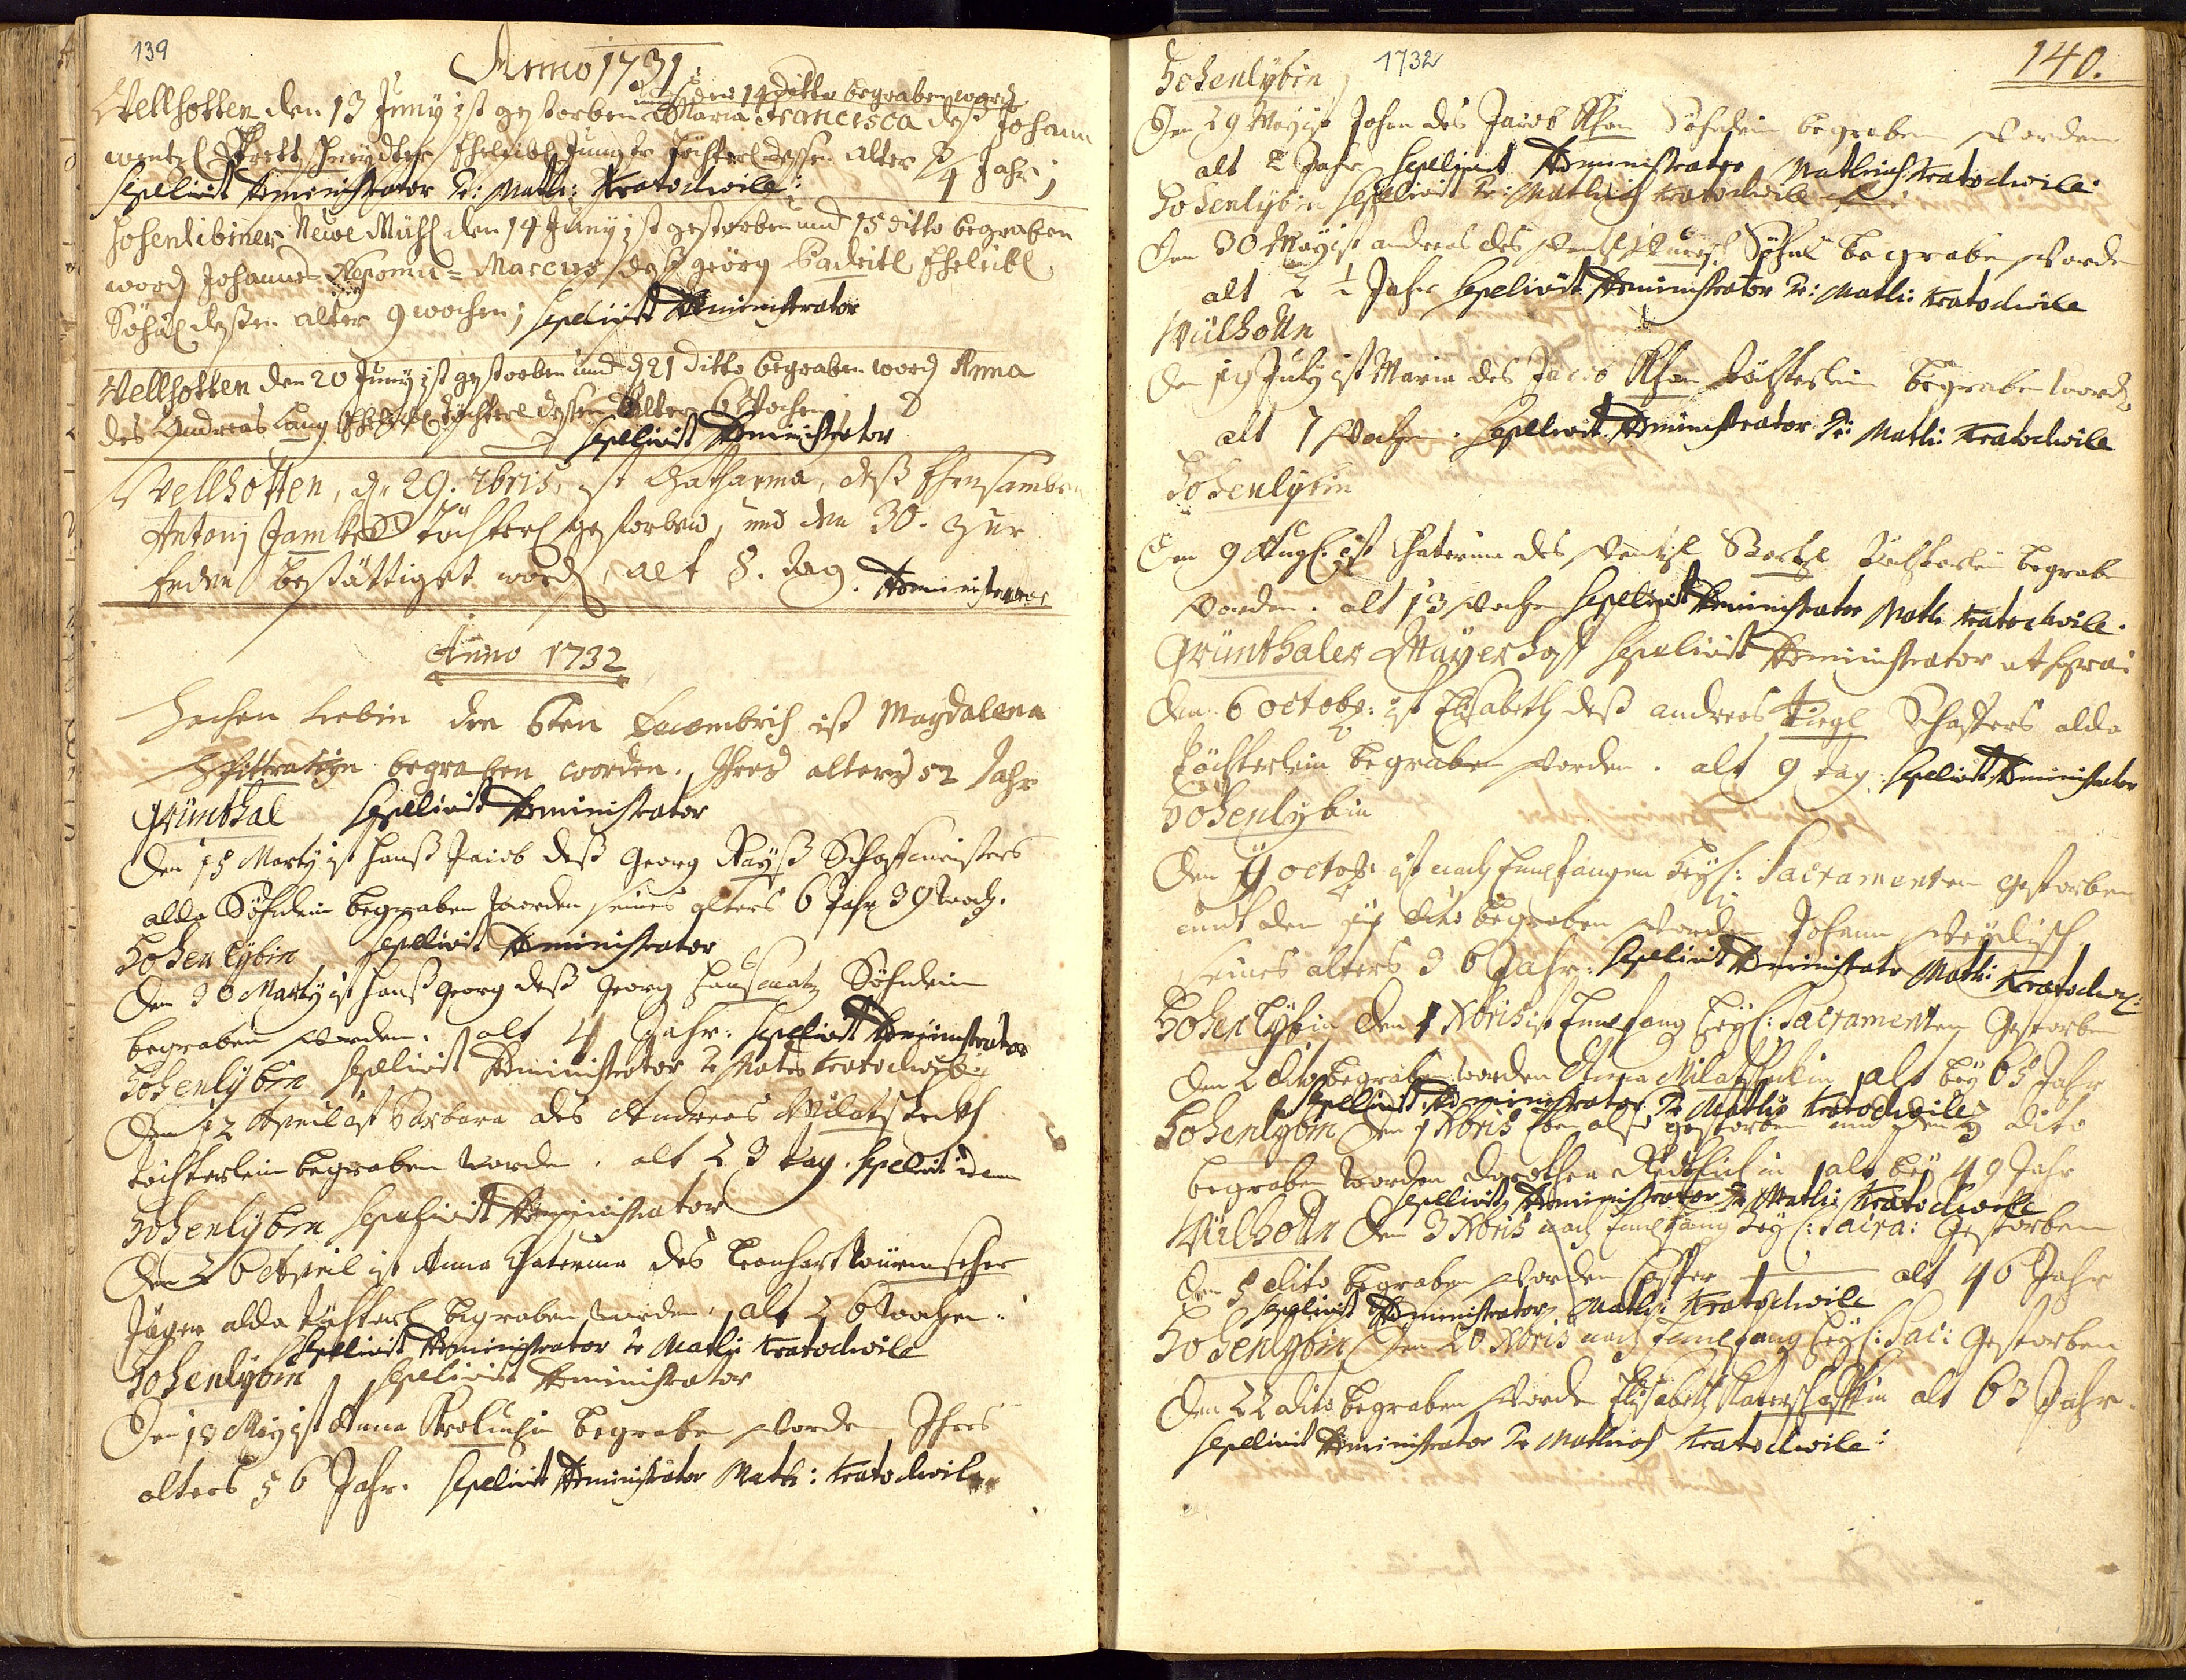 139
Anno 1731
und den 14 ditto begraben word
Wellhotten den 13 Juny ist gestorben Maria Francisca deß Johann
wentzl Ehelibl Jungste Töchterl dessen alter 3/4 Jahr;
sepelivit Administrator Pr: Math: Kratochwile:
Hohenlibiner Newe Mühl den 14 Juny ist gestorben und 15 ditto begraben
word Johannes Nepomuc= Marcus deß Georg Ehelibl
Söhnl deßen alter 9 wochen; sepelivit Administrator
Wellhotten den 20 Juny ist gestorben und d 21 ditto begraben word Anna
des Andreas Lang töchterl dessen Alter 6 Wochen
sepelivit Administrator
Wellhotten, den 29. 7bris, ist Catharina, deß Ehrsamben
Antonj töchterl gestorben, und den 30. zur
Erden bestättiget word, alt 8. Tag. Administrator
Anno 1732
Hochen Liebin den 6ten ist Magdalena
begraben worden. Ihres alters 52 Jahr
Grünthal sepelivit Administrator
Den 15 Marty ist Hanß Jacob deß Georg Schaffmeisters
alda Söhnlein begraben worden seines alters 6 Jahr 39 woch.
Hohenlybin sepelivit Administrator
Den 30 Marty ist Hanß Georg deß Georg Söhnlein
begraben worden. alt 4 Jahr: sepelivit Administrator
Hohenlybin sepelivit Administrator Pr Mathi Kratochwile
Den 12 April ist Barbara des Andreas
töchterlein begraben worden. alt 23 tag. sepelivit idem
Hohenlybin sepelivit Administrator
Den 26 April ist Anna Chaterina des Leonhart
Jäger alda töchterl begraben worden. alt 26 wochen:
sepelivit Administrator Pr Mathi Kratochwile
Hohenlybin sepelivit Administrator
Den 18 May ist Anna begraben worden Ihres
alters 56 Jahr. sepelivit Administrator Math: Kratochwile
1732
140.
Hohenlybin
Den 29 May ist Johan des Jacob Söhnlein begraben worden
alt 2 Jahr sepelivit Administrator Mathias Kratochwile:
Hohenlybin sepelivit Pr: Mathias Kratochwile
Den 30 May ist andreas des Söhnl begraben worden
alt 2 1/2 Jahr sepelivit Administrator Pr: Mathi: Kratochwile
Wülhottn
Den 19 July ist Maria des Jacob töchterlein begraben word
alt 7 wochen. sepelivit Administrator Pr: Mathi: Kratochwile
Hohenlybin
Den 9 Aug: ist Chaterina des töchterlein begraben
worden. alt 13 wochen sepelivit Administrator Math: Kratochwile.
Grünthaler Mayerhoff sepelivit Administrator ut supra:
Den 6 octobr: ist Elisabeth deß andreas Schaffers alda
töchterlein begraben worden. alt 9 tag: sepelivit Administrator
Hohenlybin
Den octobr ist nach Empfangen Heyl: Sacramenten gestorben
undt den dito begraben worden Johann
seines alters 36 Jahr: sepelivit Administrator Math: Kratochwi:
Hohenlybin Den 1 Xbris ist Empfang Heyl: Sacramenten Gestorben
Den 2 dito begraben worden Anna alt bey 65 Jahr
sepelivit Administrator Pr Mathi: Kratochwile
Hohenlybin Den 1 Xbris Eben also gestorben und den 3 dito
begraben worden Dorothea alt bey 49 Jahr
sepelivit Administrator Pr Mathi: Kratochwile
Wülhottn Den 3 Xbris nach Empfang Heyl: Sacra: Gestorben
Den 5 dito begraben worden alt 40 Jahr
sepelivit Administrator Mathi: Kratochwile
Hohenlybin Den 20 Xbris nach Empfang Heyl: Sac: Gestorben
Den 22 dito begraben worden Elisabeth alt 63 Jahr.
sepelivit Administrator Pr Mathias Kratochwile: